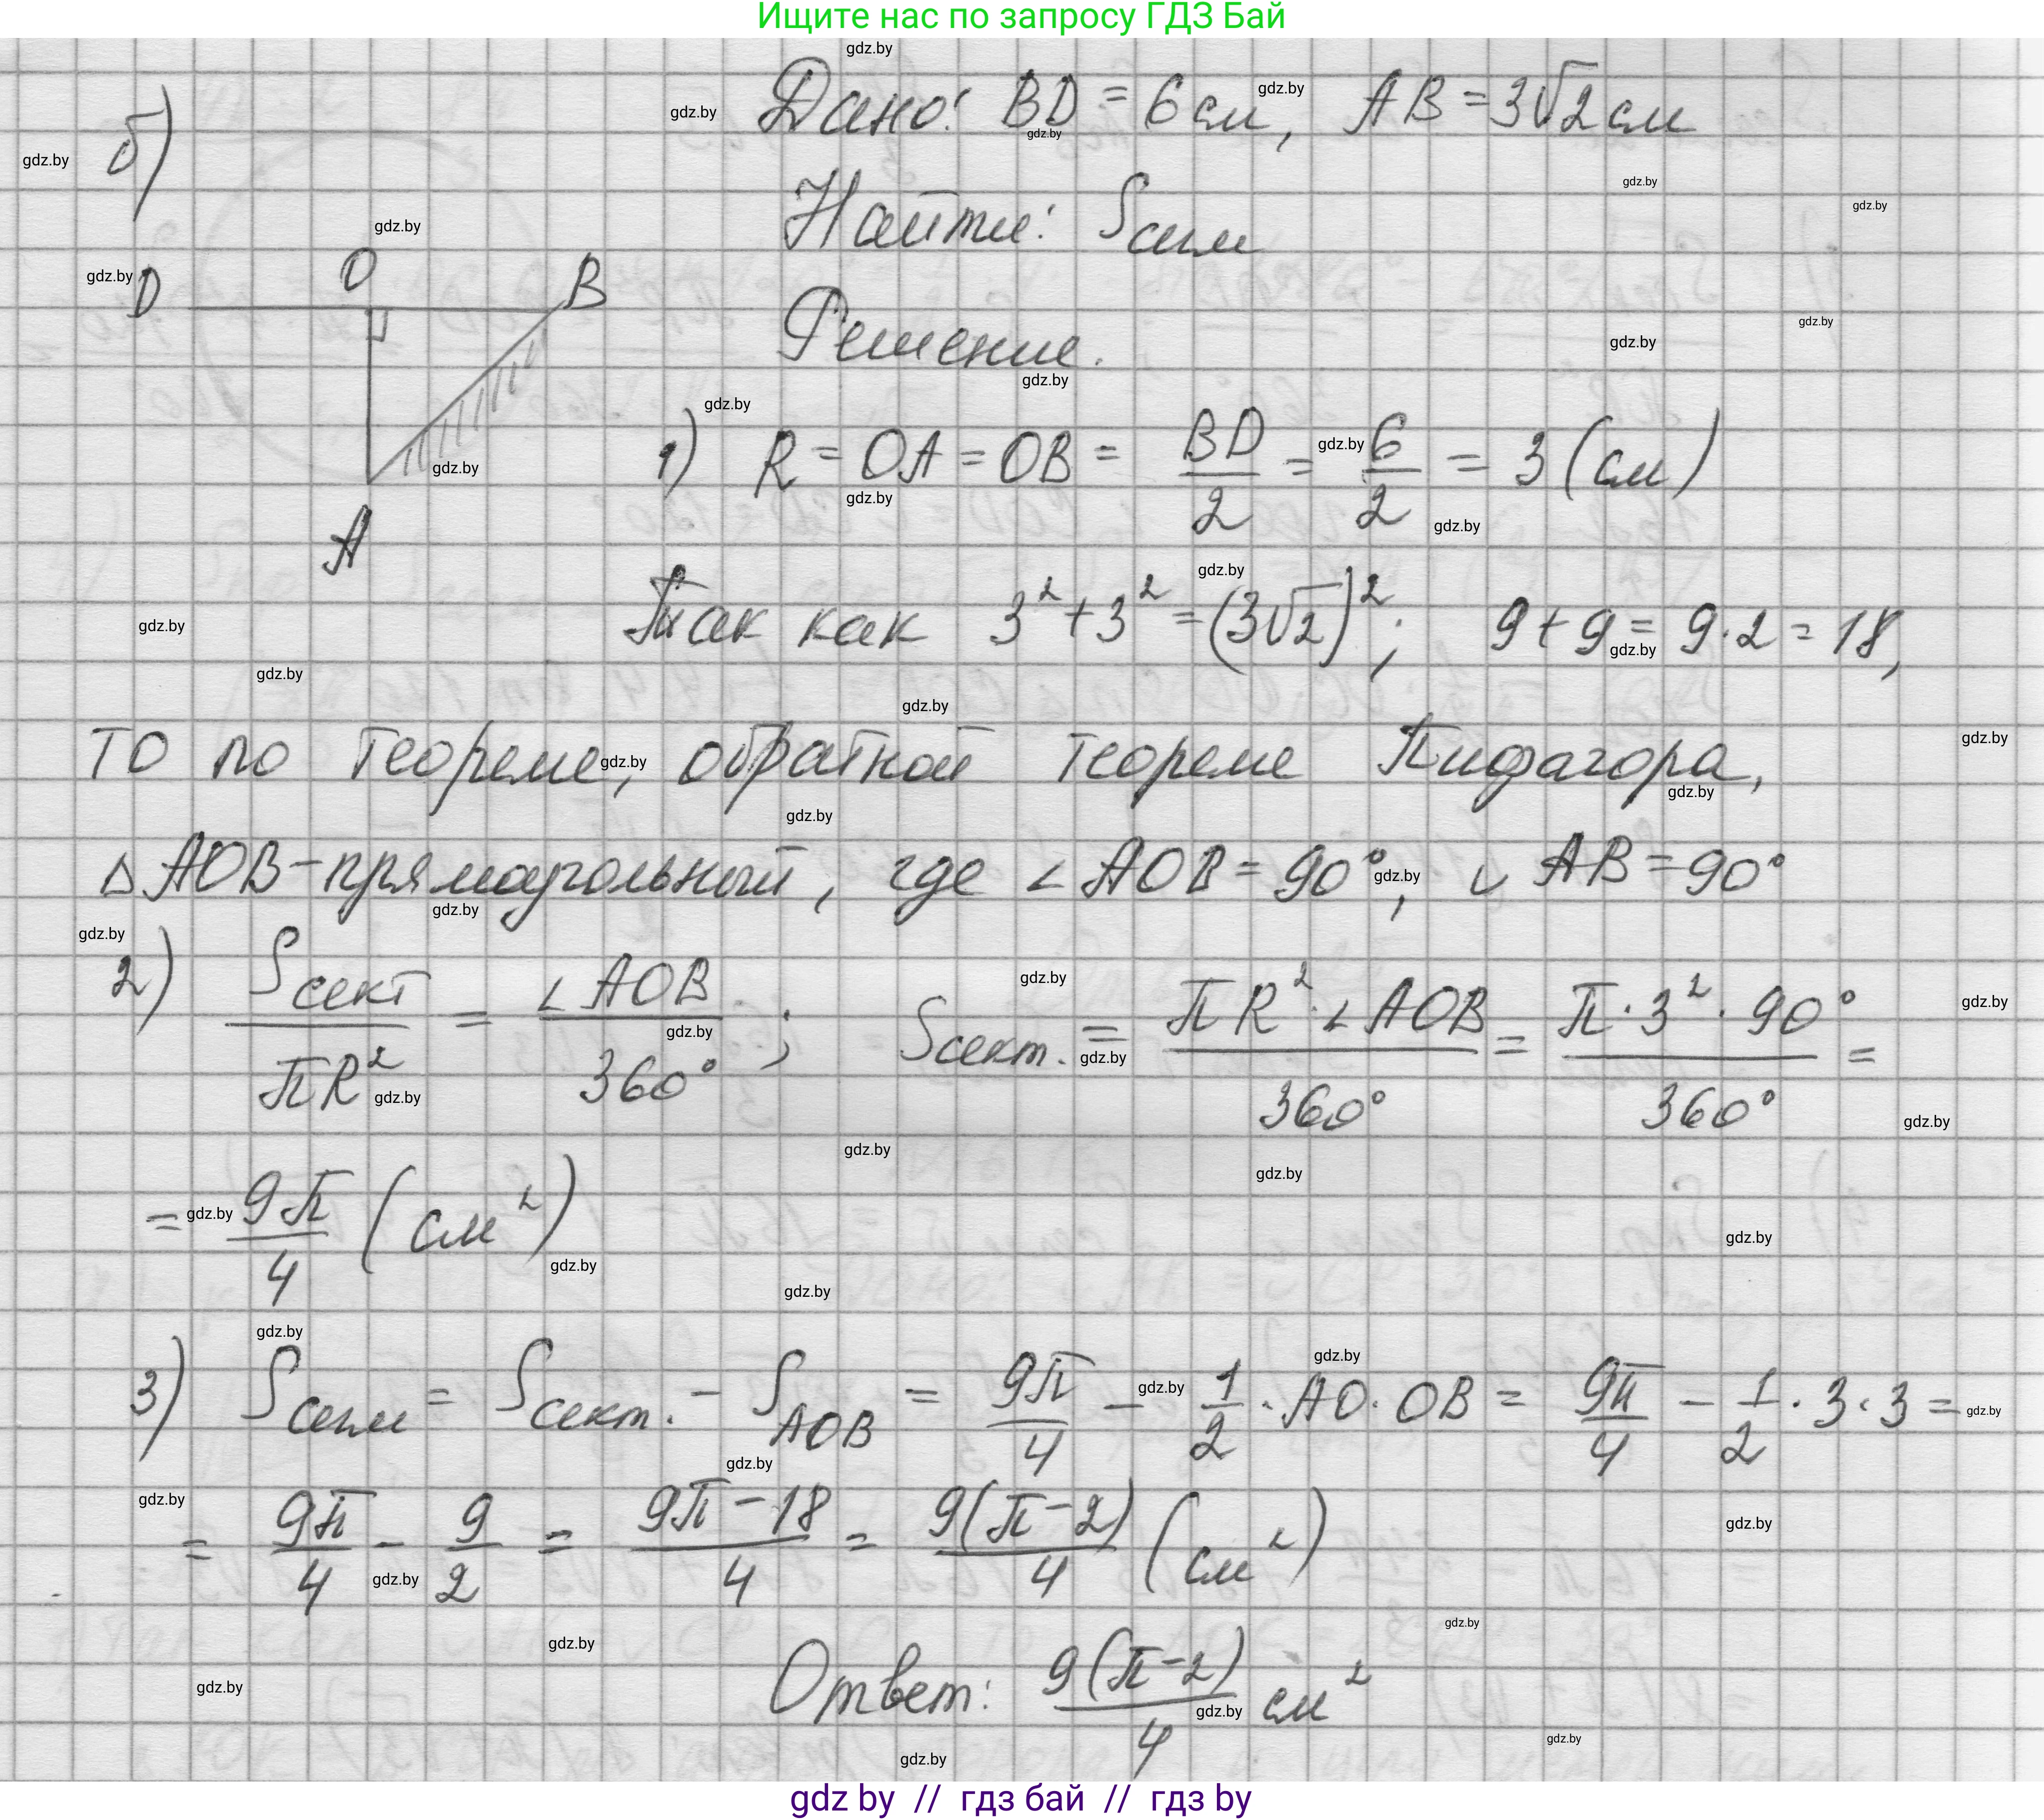 Ищите нас по запросу ГДЗ Бай
б)
Дано: BD = 6 см, AB = 3√2 см
Найти: Sсегм
D O B
A
Решение.
1) R = OA = OB = BD/2 = 6/2 = 3 (см)
Так как 3² + 3² = (3√2)²; 9 + 9 = 9·2 = 18,
то по теореме, обратной теореме Пифагора,
△ AOB - прямоугольный, где ∠ AOB = 90°, ∪ AB = 90°
2) Sсект / πR² = ∠ AOB / 360° ; Sсект. = πR² · ∠ AOB / 360° = π · 3² · 90° / 360° =
= 9π/4 (см²)
3) Sсегм = Sсект. - SAOB = 9π/4 - 1/2 · AO · OB = 9π/4 - 1/2 · 3 · 3 =
= 9π/4 - 9/2 = (9π - 18)/4 = 9(π - 2)/4 (см²)
Ответ: 9(π - 2)/4 см²
gdz by // гдз бай // гдз by